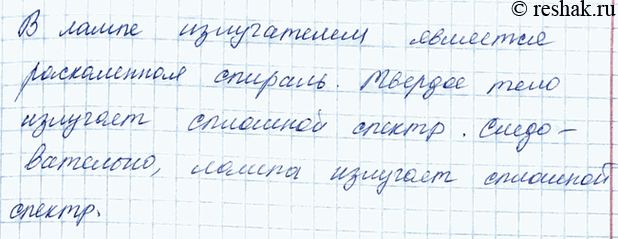 © reshak.ru
В лампе излучателем является
раскаленная спираль. Твердое тело
излучает сплошной спектр. Следо-
вательно, лампа излучает сплошной
спектр.